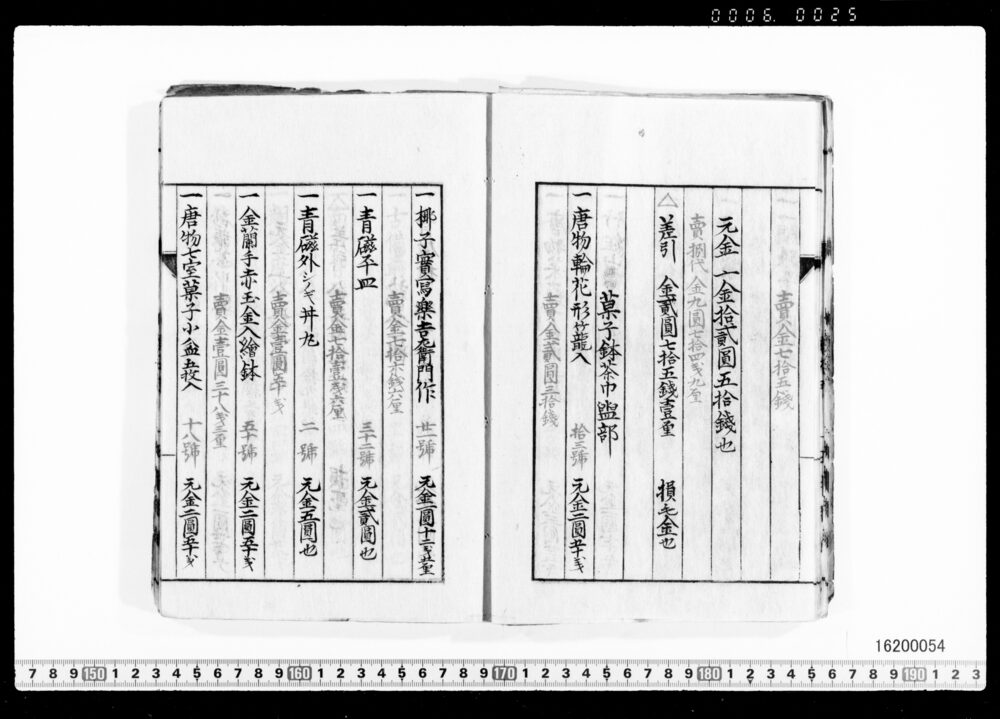 0006. 0025
賣金七拾五錢
元金 一金拾貳圓五拾錢也
賣捌代 金九圓七拾四戔九厘
△ 差引 金貳圓七拾五錢壹厘 損毛金也
菓子鉢茶巾盥部
一 唐物輪花形籠入 拾三號 元金二圓五十戔
賣金貳圓三拾錢
一 椰子實寫樂吉左衛門作 廿一號 元金二圓十二戔五厘
賣金七拾六錢六厘
一 青磁平皿 三十二號 元金貳圓也
賣金七拾壹戔六厘
一 青磁外シノギ丼九 二號 元金五圓也
賣金壹圓五十戔
一 金蘭手赤玉金入繪鉢 五十號 元金二圓五十戔
賣金壹圓三十八戔三厘
一 唐物七宝菓子小盆五枚入 十八號 元金二圓五十戔
16200054
7 8 9 150 1 2 3 4 5 6 7 8 9 160 1 2 3 4 5 6 7 8 9 170 1 2 3 4 5 6 7 8 9 180 1 2 3 4 5 6 7 8 9 190 1 2 3